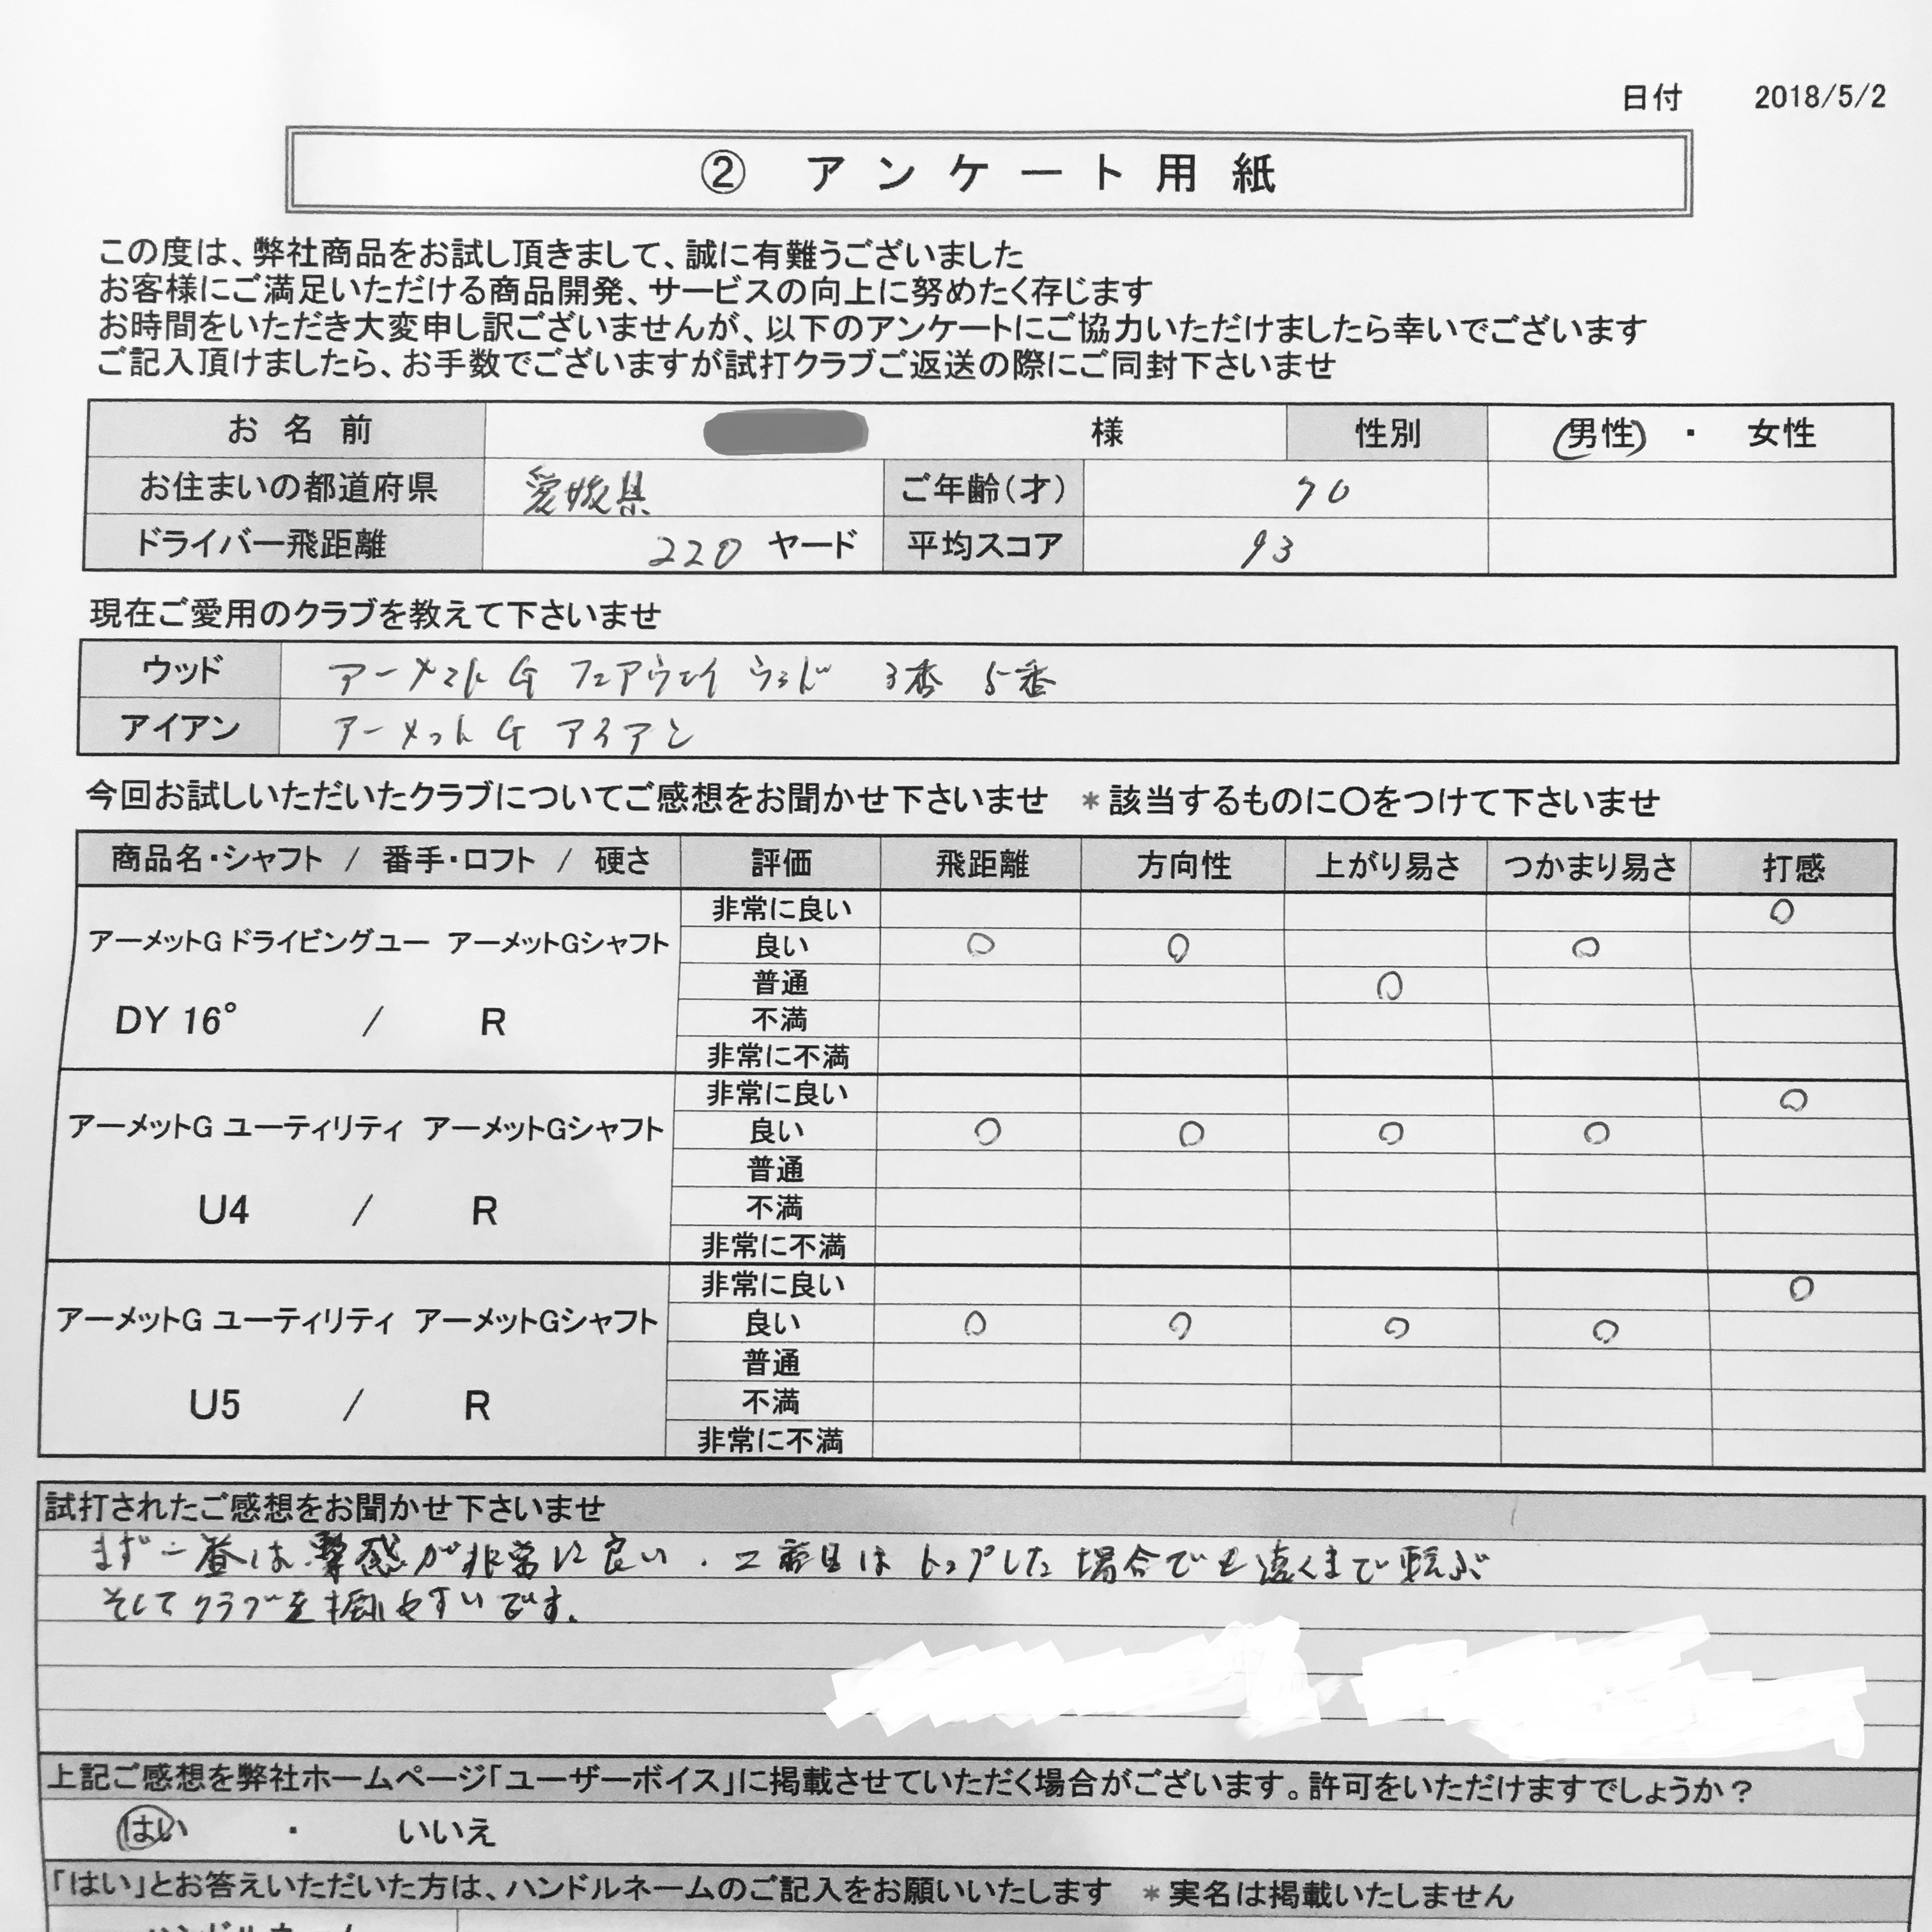 日付 2018/5/2
② アンケート用紙
この度は、弊社商品をお試し頂きまして、誠に有難うございました
お客様にご満足いただける商品開発、サービスの向上に努めたく存じます
お時間をいただき大変申し訳ございませんが、以下のアンケートにご協力いただけましたら幸いでございます
ご記入頂けましたら、お手数でございますが試打クラブご返送の際にご同封下さいませ
お名前 様 性別 男性 ・ 女性
お住まいの都道府県 愛媛県 ご年齢(才) 70
ドライバー飛距離 220 ヤード 平均スコア 93
現在ご愛用のクラブを教えて下さいませ
ウッド アーメットG フェアウェイウッド 3番 5番
アイアン アーメットG アイアン
今回お試しいただいたクラブについてご感想をお聞かせ下さいませ *該当するものに〇をつけて下さいませ
商品名・シャフト / 番手・ロフト / 硬さ 評価 飛距離 方向性 上がり易さ つかまり易さ 打感
非常に良い 〇
アーメットG ドライビングユー アーメットGシャフト 良い 〇 〇 〇
普通 〇
DY 16° / R 不満
非常に不満
非常に良い 〇
アーメットG ユーティリティ アーメットGシャフト 良い 〇 〇 〇 〇
普通
U4 / R 不満
非常に不満
非常に良い 〇
アーメットG ユーティリティ アーメットGシャフト 良い 〇 〇 〇 〇
普通
U5 / R 不満
非常に不満
試打されたご感想をお聞かせ下さいませ
まず一番は撃感が非常に良い.二番目はトップした場合でも遠くまで転ぶ
そしてクラブを振りやすいです.
上記ご感想を弊社ホームページ「ユーザーボイス」に掲載させていただく場合がございます。許可をいただけますでしょうか?
はい ・ いいえ
「はい」とお答えいただいた方は、ハンドルネームのご記入をお願いいたします *実名は掲載いたしません